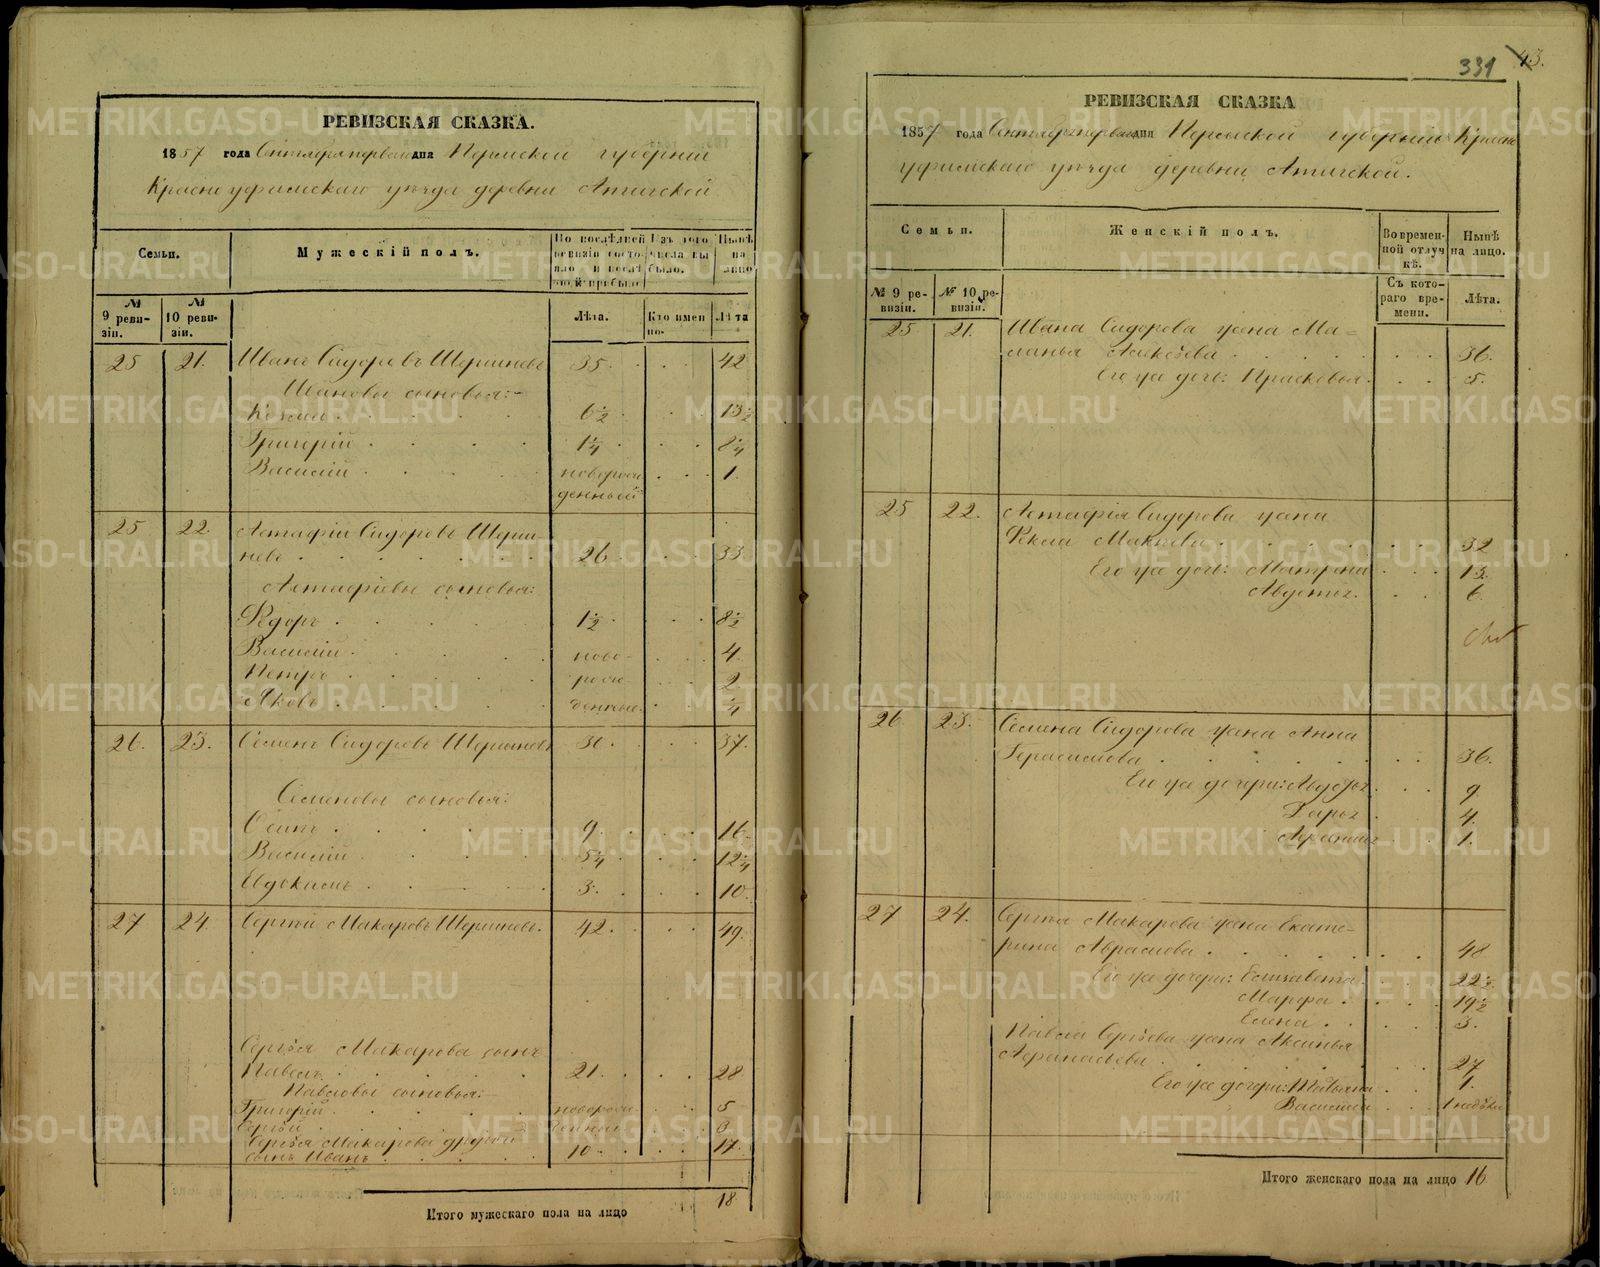 РЕВИЗСКАЯ СКАЗКА.
1857 года Сентября первого дня Пермской губернiи
Красноуфимскаго уѣзда деревни Атигской
Семьи.
Мужескiй полъ.
По послѣдней ревизiи состояло и послѣ той прибыло
Изъ того числа выбыло.
Нынѣ на лицо
№ 9 ревизiи.
№ 10 ревизiи.
Лѣта.
Кто именно.
Лѣта
25 21. Иванъ Сидоровъ Шершневъ 35. 42
Ивановы сыновья:
6½ 13½
Григорiй 1¼ 8¼
Василiй новорожденный 1.
25 22. Астафiй Сидоровъ Шершневъ 26. 33
Астафiевы сыновья:
Ѳедоръ 1½ 8½
Василiй ново- 4.
Петръ рож- 2
Яковъ денные. ¼
26. 23. Семенъ Сидоровъ Шершневъ 30. 37.
Семеновы сыновья:
Осипъ 9. 16.
Василiй 5¼ 12¼
Евдокимъ 3. 10.
27 24. Сергѣй Макаровъ Шершневъ. 42. 49.
Сергѣя Макарова сынъ
Павелъ 21. 28
Павловы сыновья:
Григорiй новорож- 5
Сергѣй денные 3
Сергѣя Макарова другой
сынъ Иванъ 10. 17.
Итого мужескаго пола на лицо 18
331 43.
РЕВИЗСКАЯ СКАЗКА
1857 года Сентября первого дня Пермской губернiи Красно
уфимскаго уѣзда деревни Атигской.
Семьи.
Женскiй полъ.
Во временной отлучкѣ.
Нынѣ на лицо.
№ 9 ревизiи.
№ 10 ревизiи.
Съ котораго времени.
Лѣта.
25 21. Ивана Сидорова жена Маланья Алексѣева 36.
Его же дочь: Прасковья. 5.
25 22. Астафiя Сидорова жена
Ѳекла 32
Его же дочь: Матрена 13.
Авдотья. 6.
26 23. Семена Сидорова жена Анна
Герасимова 36.
Его же дочери: Авдотья 9.
Дарья 4.
1.
27 24. Сергѣя Макарова жена Екатерина Аврамова 48
Его же дочери: Елизавета 22½
Марфа 19½
Елена 3.
Павла Сергѣева жена Аксинья
Афанасьева 27
Его же дочери: Татьяна 1.
Василиса 1 недѣли
Итого женскаго пола на лицо 16
METRIKI.GASO-URAL.RU